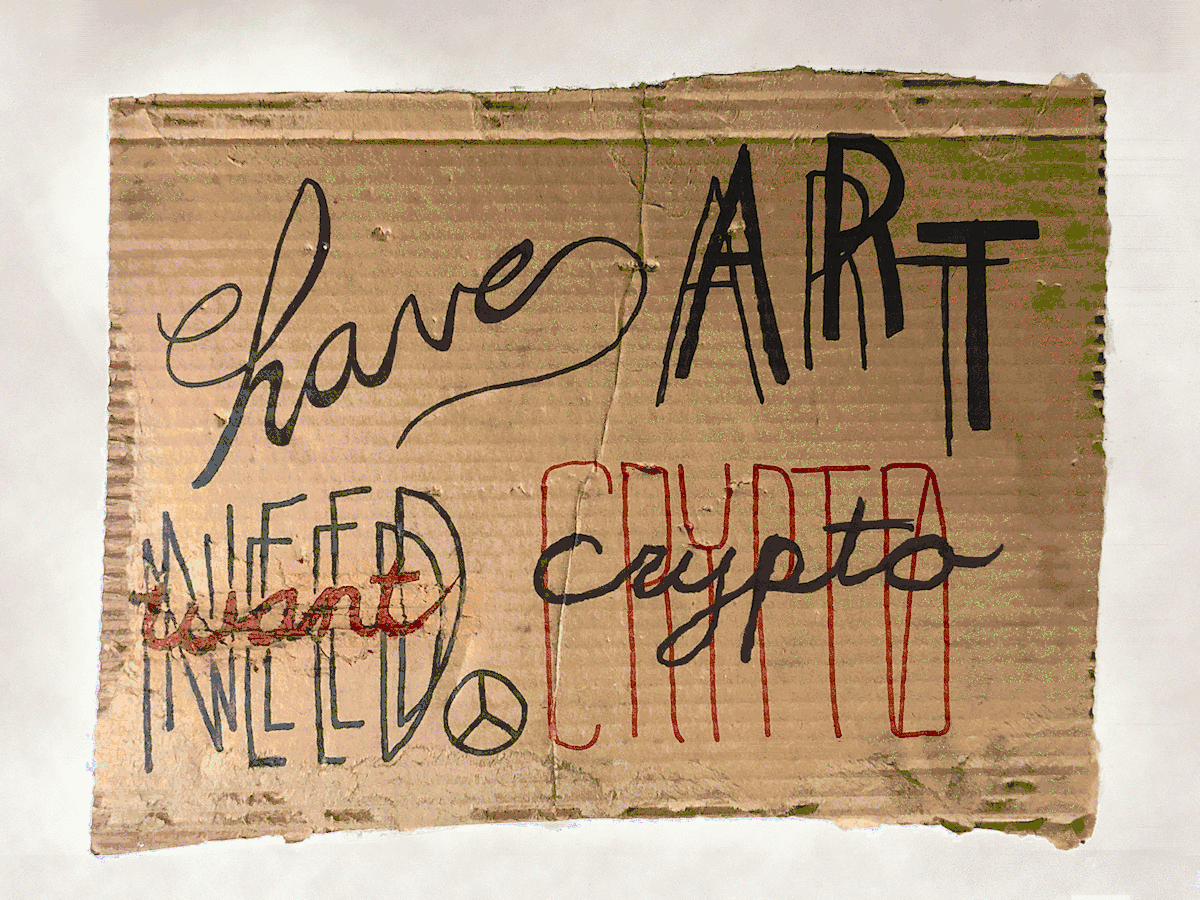 have ART
NEED want CRYPTO crypto